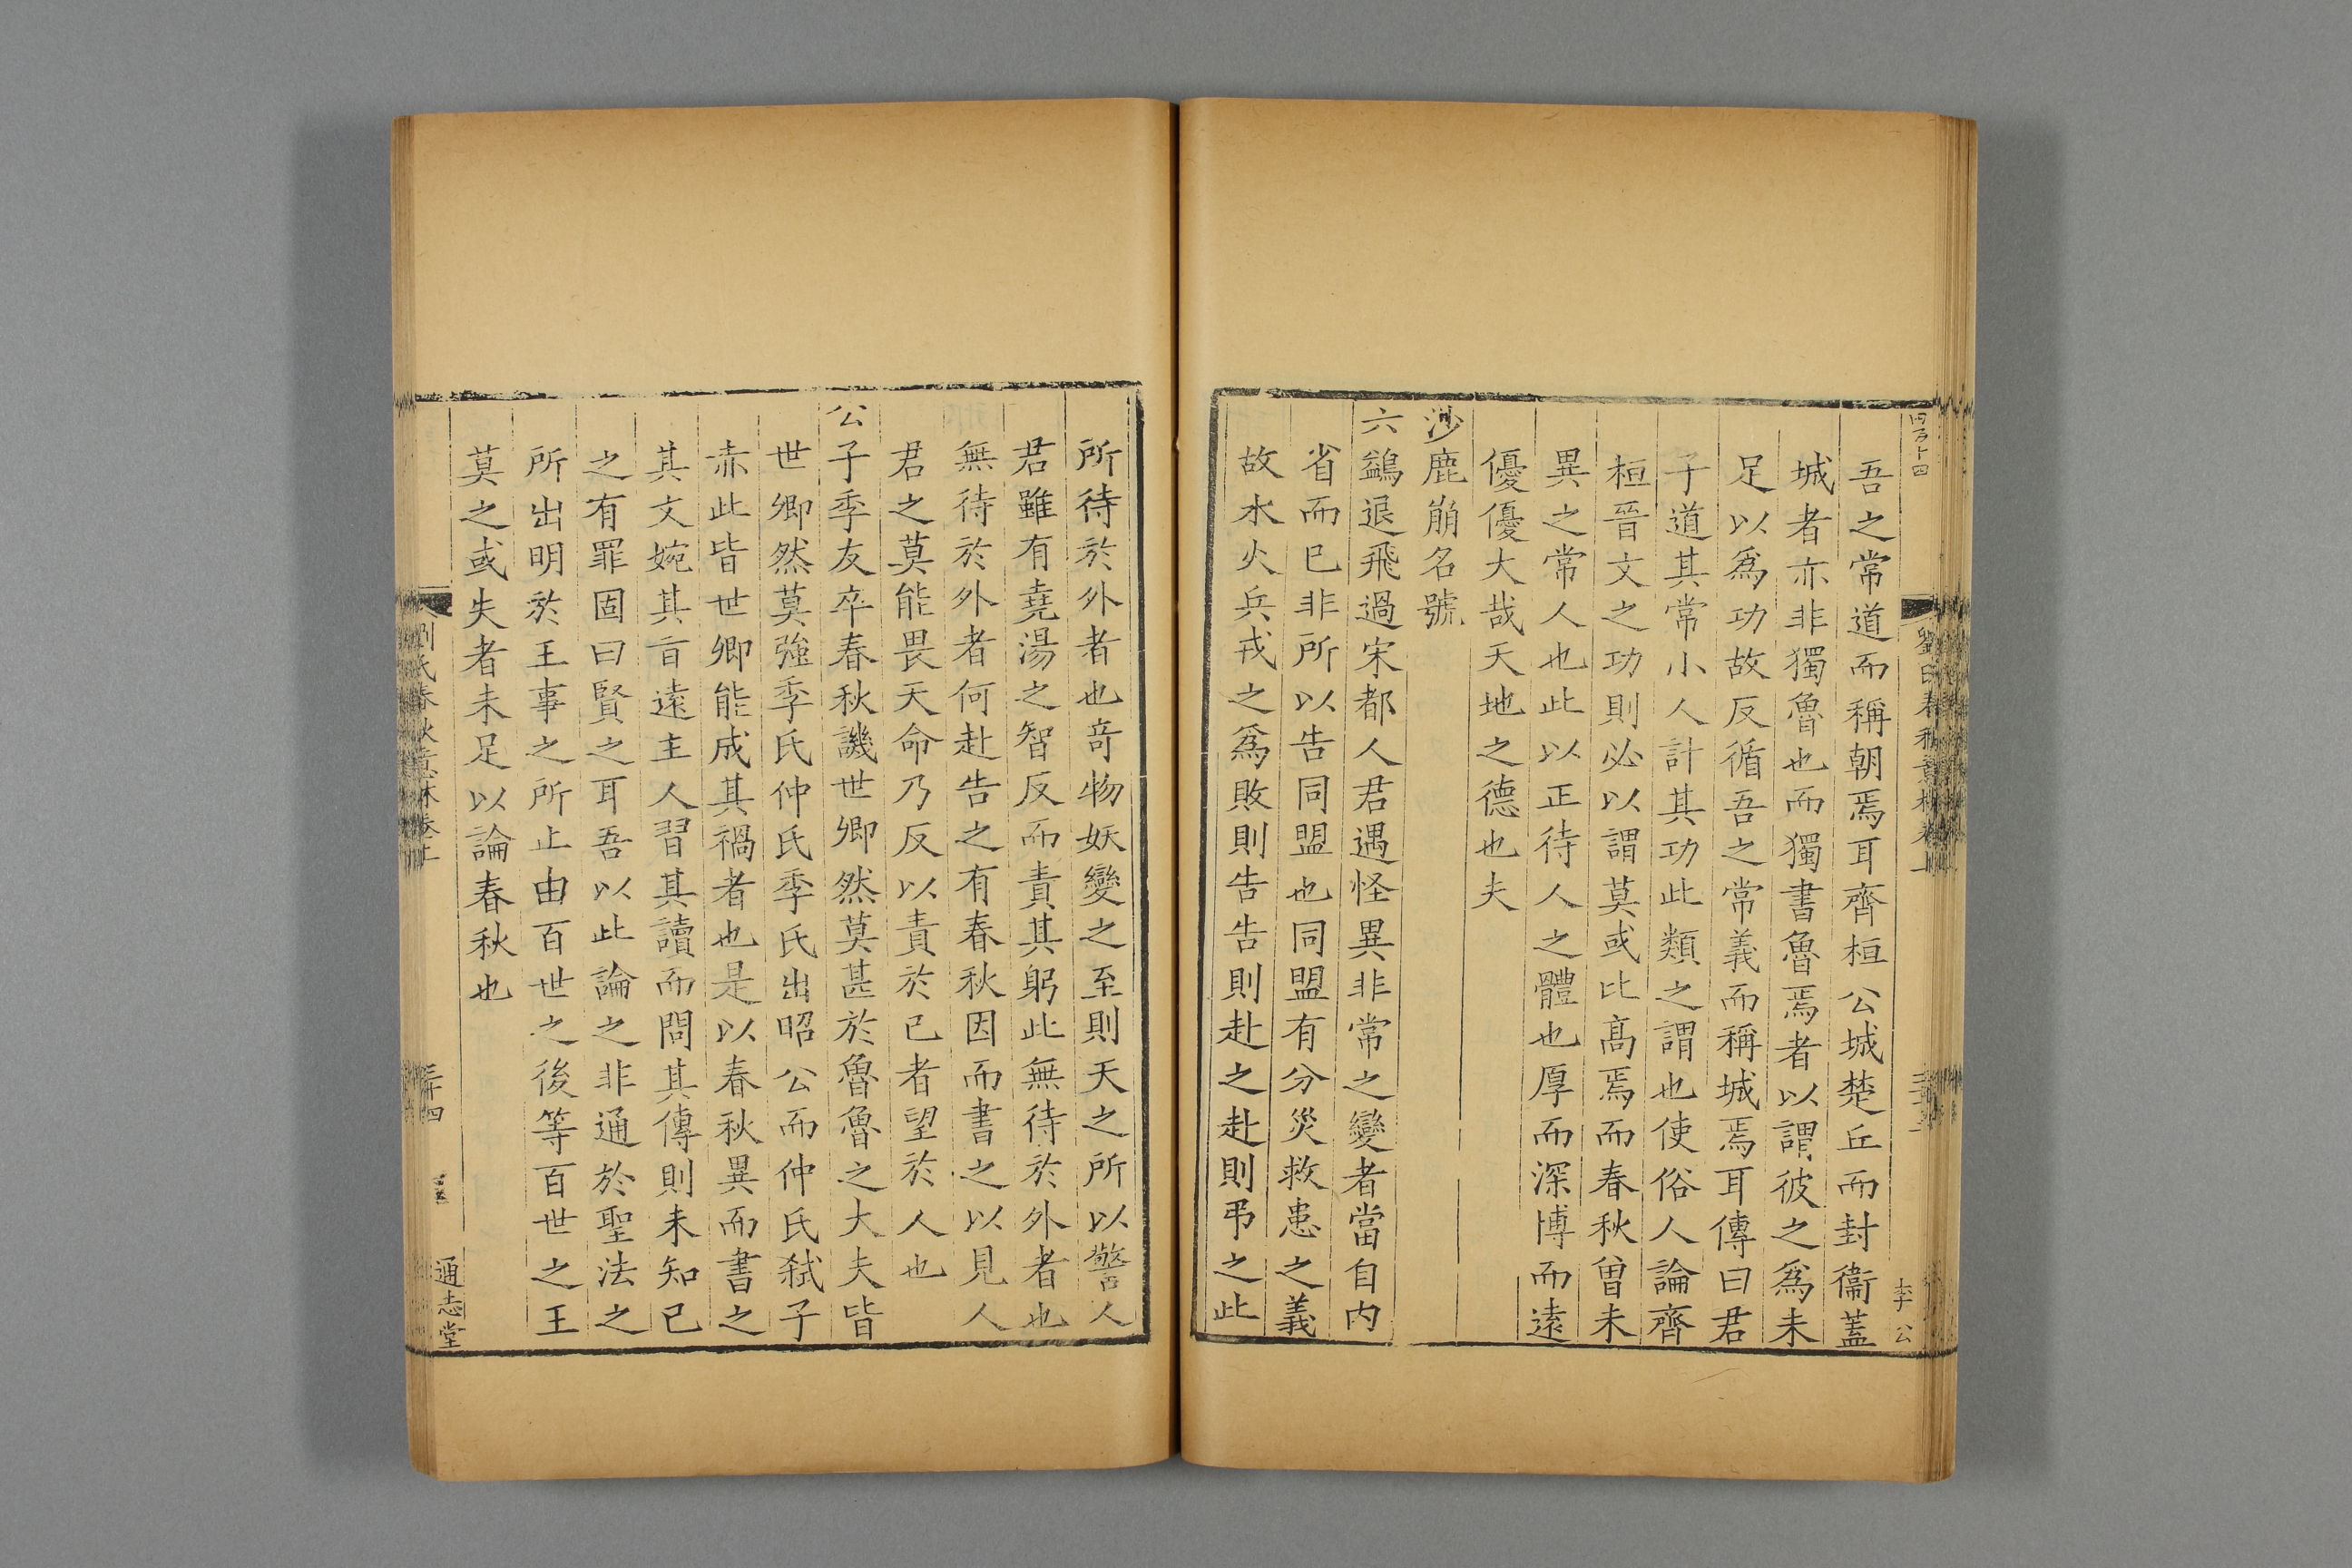 吾之常道而稱朝焉耳齊桓公城楚丘而封衞蓋
城者亦非獨魯也而獨書魯焉者以謂彼之爲未
足以爲功故反循吾之常義而稱城焉耳傳曰君
子道其常小人計其功此類之謂也使俗人論齊
桓晉文之功則必以謂莫或比髙焉而春秋曽未
異之常人也此以正待人之體也厚而深博而遠
優優大哉天地之德也夫
沙鹿崩名號
六鷁退飛過宋都人君遇怪異非常之變者當自内
省而已非所以告同盟也同盟有分災救患之義
故水火兵戎之爲敗則告告則赴之赴則弔之此
李公
所待於外者也竒物妖變之至則天之所以警人
君雖有堯湯之智反而責其躬此無待於外者也
無待於外者何赴告之有春秋因而書之以見人
君之莫能畏天命乃反以責於已者望於人也
公子季友卒春秋譏世卿然莫甚於魯魯之大夫皆
世卿然莫強季氏仲氏季氏出昭公而仲氏弑子
赤此皆世卿能成其禍者也是以春秋異而書之
其文婉其㫖遠主人習其讀而問其傳則未知已
之有罪固曰賢之耳吾以此論之非通於聖法之
所出明於王事之所止由百世之後等百世之王
莫之或失者未足以論春秋也
劉氏春秋意林卷上
三十四
通志堂